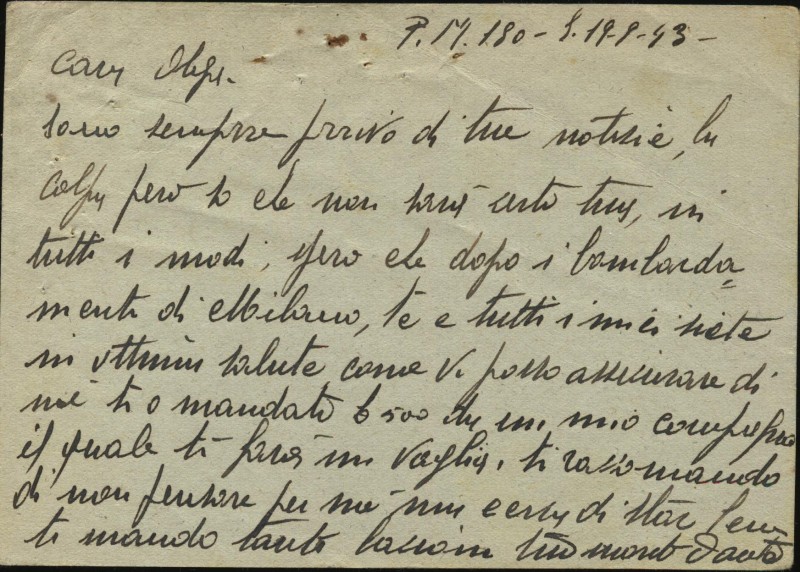 P.M. 180 - S. 19-8-43-
Cara Olga.
sono sempre privo di tue notizie, la
colpa pero so che non sarà certo tua, in
tutti i modi, spero che dopo i bombarda=
menti di Milano, te e tutti i miei siete
in ottima salute come vi posso assicurare di
me ti o mandato £ 500 da un mio compagno
il quale ti farà un vaglia, ti raccomando
di non pensare per me ma cerca di star bene
ti mando tanti bacioni tuo